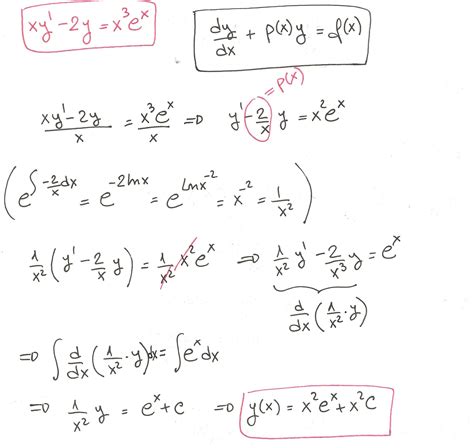 xy' - 2y = x³eˣ
dy/dx + p(x)y = f(x)
= p(x)
(xy' - 2y)/x = x³eˣ/x ⇒ y' - 2/x y = x²eˣ
(e^∫-2/x dx = e^-2lnx = e^Lnx⁻² = x⁻² = 1/x²)
1/x² (y' - 2/x y) = 1/x² x²eˣ ⇒ 1/x² y' - 2/x³ y = eˣ
d/dx (1/x² · y)
⇒ ∫ d/dx (1/x² · y) dx = ∫ eˣ dx
⇒ 1/x² y = eˣ + c ⇒ y(x) = x²eˣ + x²C